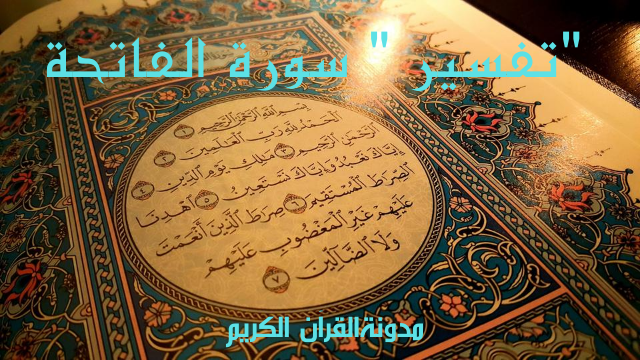 "تفسير " سورة الفاتحة
بِسْمِ اللَّهِ الرَّحْمَٰنِ الرَّحِيمِ ١
الْحَمْدُ لِلَّهِ رَبِّ الْعَالَمِينَ ٢
الرَّحْمَٰنِ الرَّحِيمِ ٣ مَالِكِ يَوْمِ الدِّينِ ٤
إِيَّاكَ نَعْبُدُ وَإِيَّاكَ نَسْتَعِينُ ٥ اهْدِنَا
الصِّرَاطَ الْمُسْتَقِيمَ ٦ صِرَاطَ الَّذِينَ أَنْعَمْتَ
عَلَيْهِمْ غَيْرِ الْمَغْضُوبِ عَلَيْهِمْ
وَلَا الضَّالِّينَ ٧
مدونةالقران الكريم